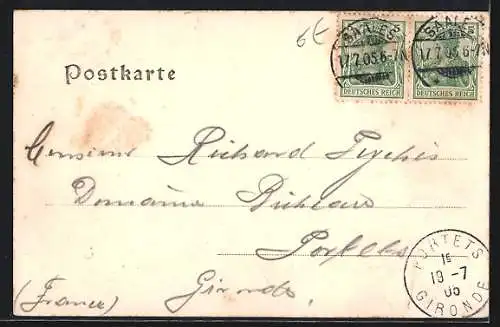 6€
SAALES
17.7.05.6-7N
SAALES
17.7.05.6-7N
DEUTSCHES REICH
DEUTSCHES REICH
Postkarte
Monsieur Richard
Domaine
Portets
(France) Gironde
PORTETS
19 -7
05
GIRONDE